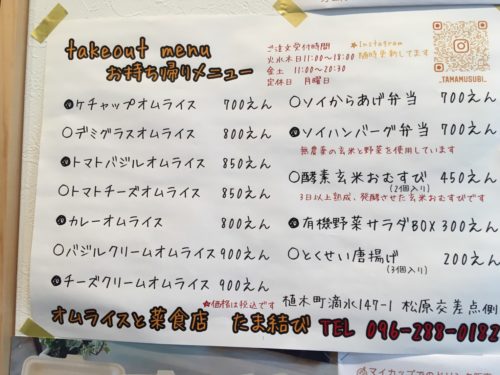 takeout menu
お持ち帰りメニュー
ご注文受付時間
火水木日11:00〜18:00
金土 11:00〜20:30
定休日 月曜日
★Instagram
随時更新してます
_TAMAMUSUBI_
ケチャップオムライス 700えん
○デミグラスオムライス 800えん
トマトバジルオムライス 850えん
○トマトチーズオムライス 850えん
カレーオムライス 800えん
○バジルクリームオムライス 900えん
チーズクリームオムライス 900えん
★価格は税込です
○ソイからあげ弁当 700えん
ソイハンバーグ弁当 700えん
無農薬の玄米と野菜を使用しています
○酵素玄米おむすび 450えん
(2個入り)
3日以上熟成、発酵させた玄米おむすびです
有機野菜サラダBOX 300えん
○とくせい唐揚げ 200えん
(3個入り)
植木町滴水147-1 松原交差点側
オムライスと薬食店 たま結び TEL 096-288-0182